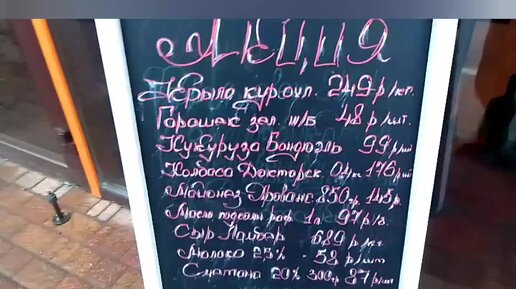 Акция
Крыло кур охл. 249 р/кг.
Горошек зел. ж/б 48 р/шт.
Кукуруза Бондюэль 99 р/шт
Колбаса Докторск. 0,4к 176 р/шт
Майонез Прованс 850гр. 145р.
Масло подсолн раф 1л 97р/б.
Сыр Ламбер 689 р/кг.
Молоко 2,5% - 58 р/шт
Сметана 20% 300гр 87р/шт